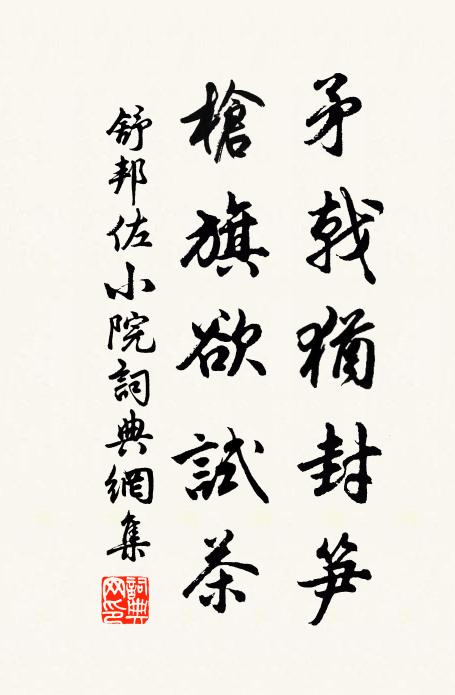 矛戟猶封笋
槍旗欲試茶
舒邦佐小院詞典網集
詞典網印